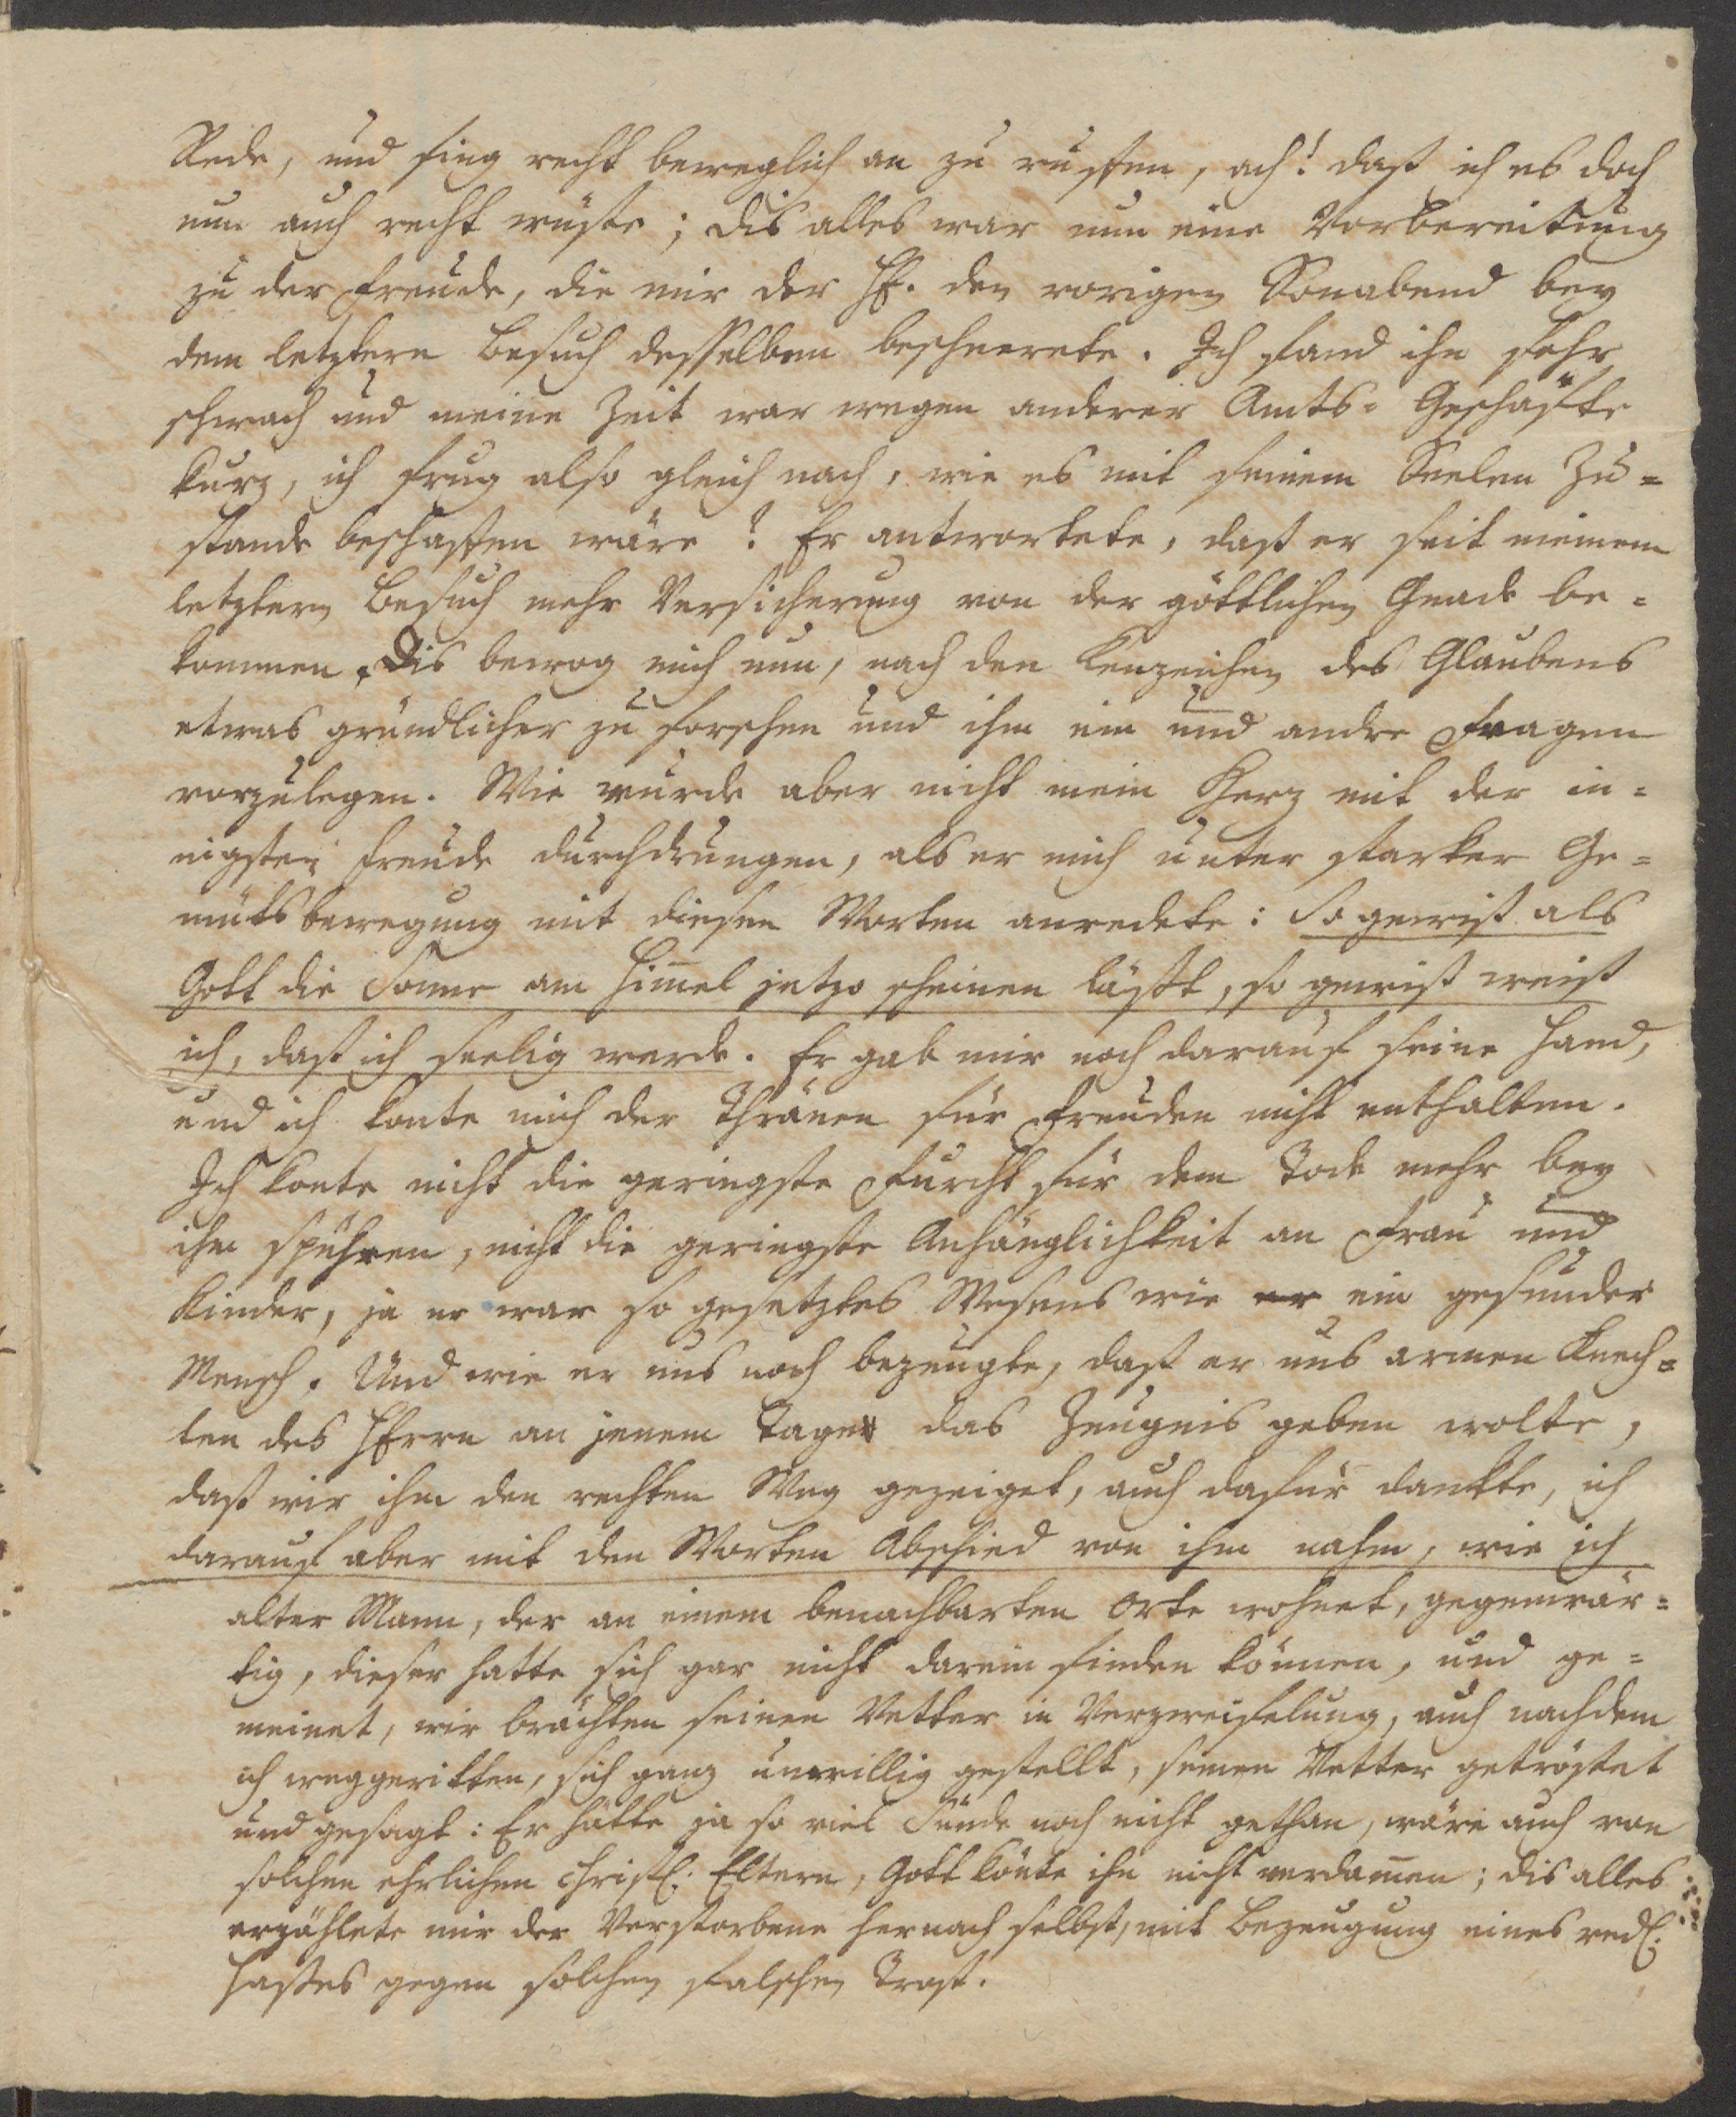 Rede, und fing recht beweglich an zu ruffen, ach! daß ich es doch
nun auch recht wüste; dis alles war nun eine Vorbereitung
zu der Freude, die mir der HE. den vorigen Sonabend bey
dem letztern Besuch desselben bescheerete. Ich fand ihn sehr
schwach und meine Zeit war wegen anderer Amts-Geschäfte
kurz, ich frug also gleich nach, wie es mit seinem Seelen Zu=
stande beschaffen wäre? Er antwortete, daß er seit meinem
letztern Besuch mehr Versicherung von der göttlichen Gnade be=
kommen. Dis bewog mich nun, nach den Kenzeichen des Glaubens
etwas gründlicher zu forschen und ihm ein und andre Fragen
vorzulegen. Wie wurde aber nicht mein Herz mit der in=
nigsten Freude durchdrungen, als er mich unter starker Ge=
mütsbewegung mit diesen Worten anredete: So gewiß als
Gott die Sonne am Him̄el jetzo scheinen läßt, so gewiß weiß
ich, daß ich seelig werde. Er gab mir noch darauf seine Hand,
und ich konte mich der Thränen für Freuden nicht enthalten.
Ich konte nicht die geringste Furcht für dem Tode mehr bey
ihm spühren, nicht die geringste Anhänglichkeit an Frau und
Kinder, ja er war so gesetztes Wesens wie er ein gesunder
Mensch. Und wie er uns noch bezeugte, daß er uns armen Knech=
ten des HErrn an jenem Tage das Zeugnis geben wolte,
daß wir ihm den rechten Weg gezeiget, auch dafür dankte, ich
darauf aber mit den Worten Abschied von ihm nahm, wie ich
alter Mann, der an einem benachbarten Orte wohnet, gegenwär=
tig, dieser hatte sich gar nicht darein finden können, und ge=
meinet, wir brächten seinen Vetter in Verzweifelung, auch nachdem
ich weggeritten, sich ganz unwillig gestellt, seinen Vetter getröstet
und gesagt: Er hätte ja so viel Sünde noch nicht gethan, wäre auch von
solchen ehrlichen christl. Eltern, Gott könte ihn nicht verdam̄en; dis alles
erzählete mir der Verstorbene hernach selbst, mit Bezeugung eines redl.
Hasses gegen solchen falschen Trost.